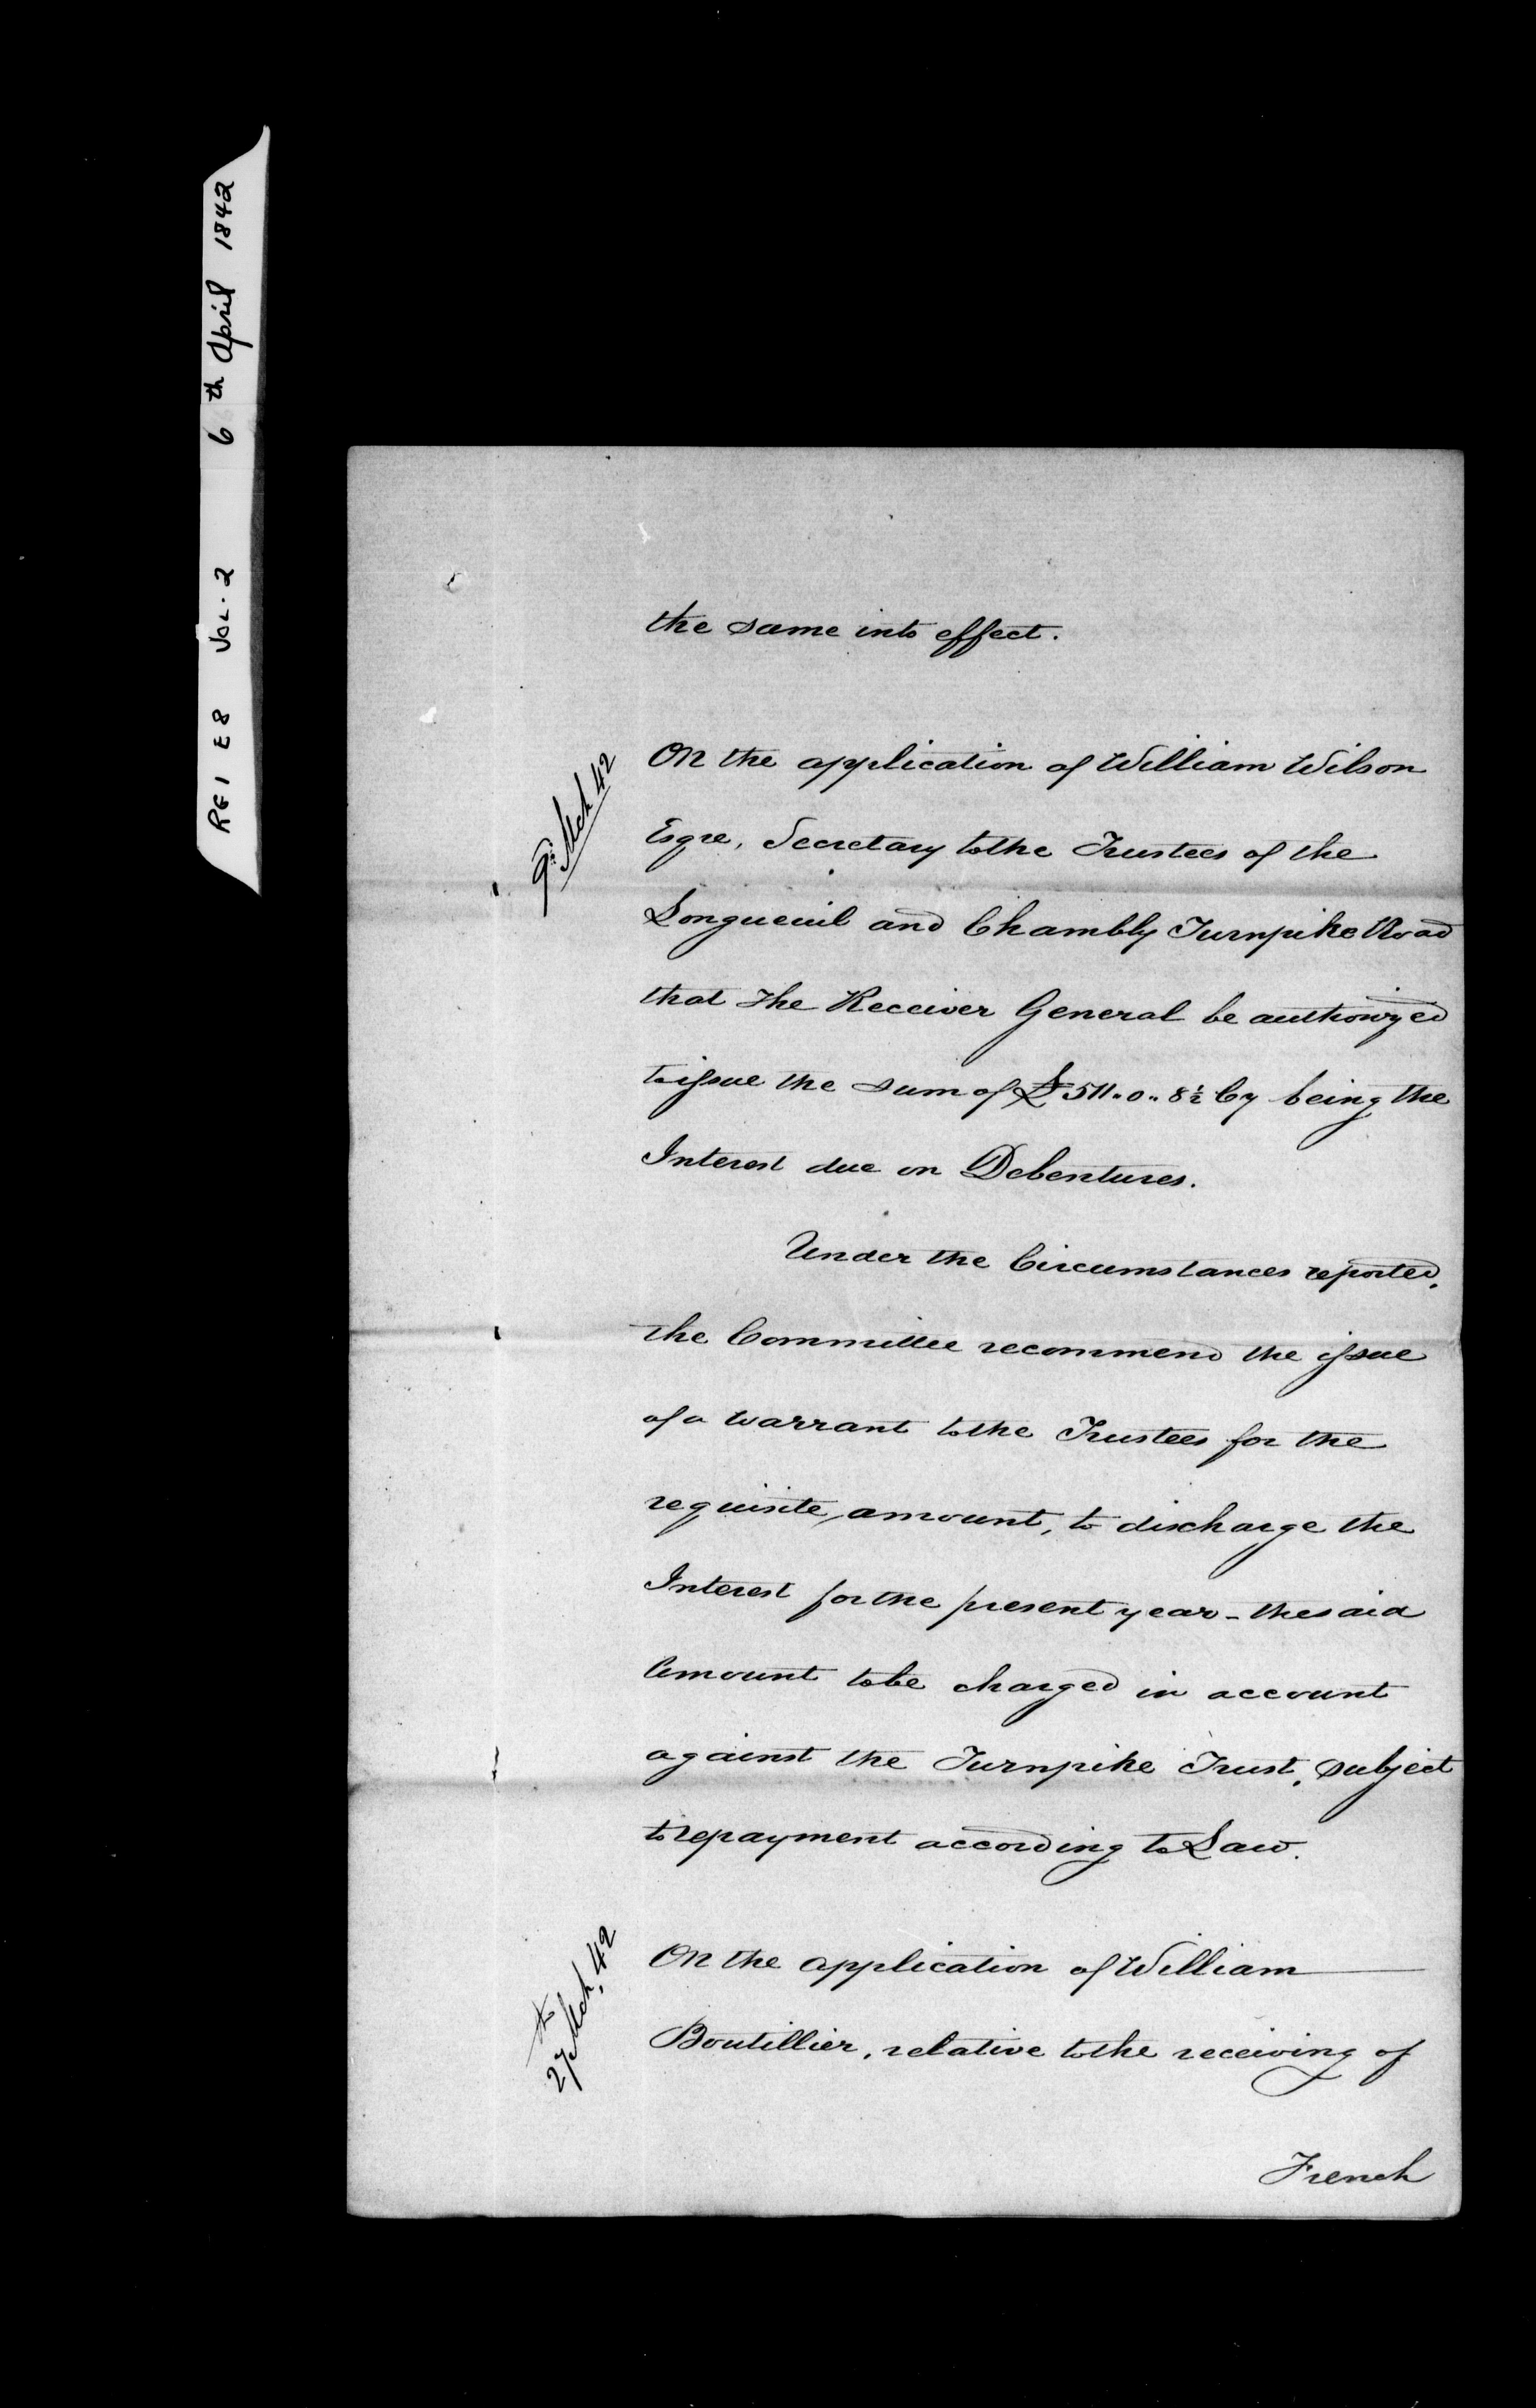 RG1 E8 VOL. 2 6th April 1842
the same into effect.
9th Mch 42
On the application of William Wilson
Esqre, Secretary to the Trustees of the
Longueuil and Chambly Turnpike Road
that the Receiver General be authorized
to issue the sum of £511..0..8½ Cy being the
Interest due on Debentures.
Under the Circumstances reported,
the Committee recommend the issue
of a warrant to the Trustees for the
requisite amount, to discharge the
Interest for the present year - the said
Amount to be charged in account
against the Turnpike Trust, subject
to repayment according to Law.
27th Mch, 42
On the application of William
Boutillier, relative to the receiving of
French